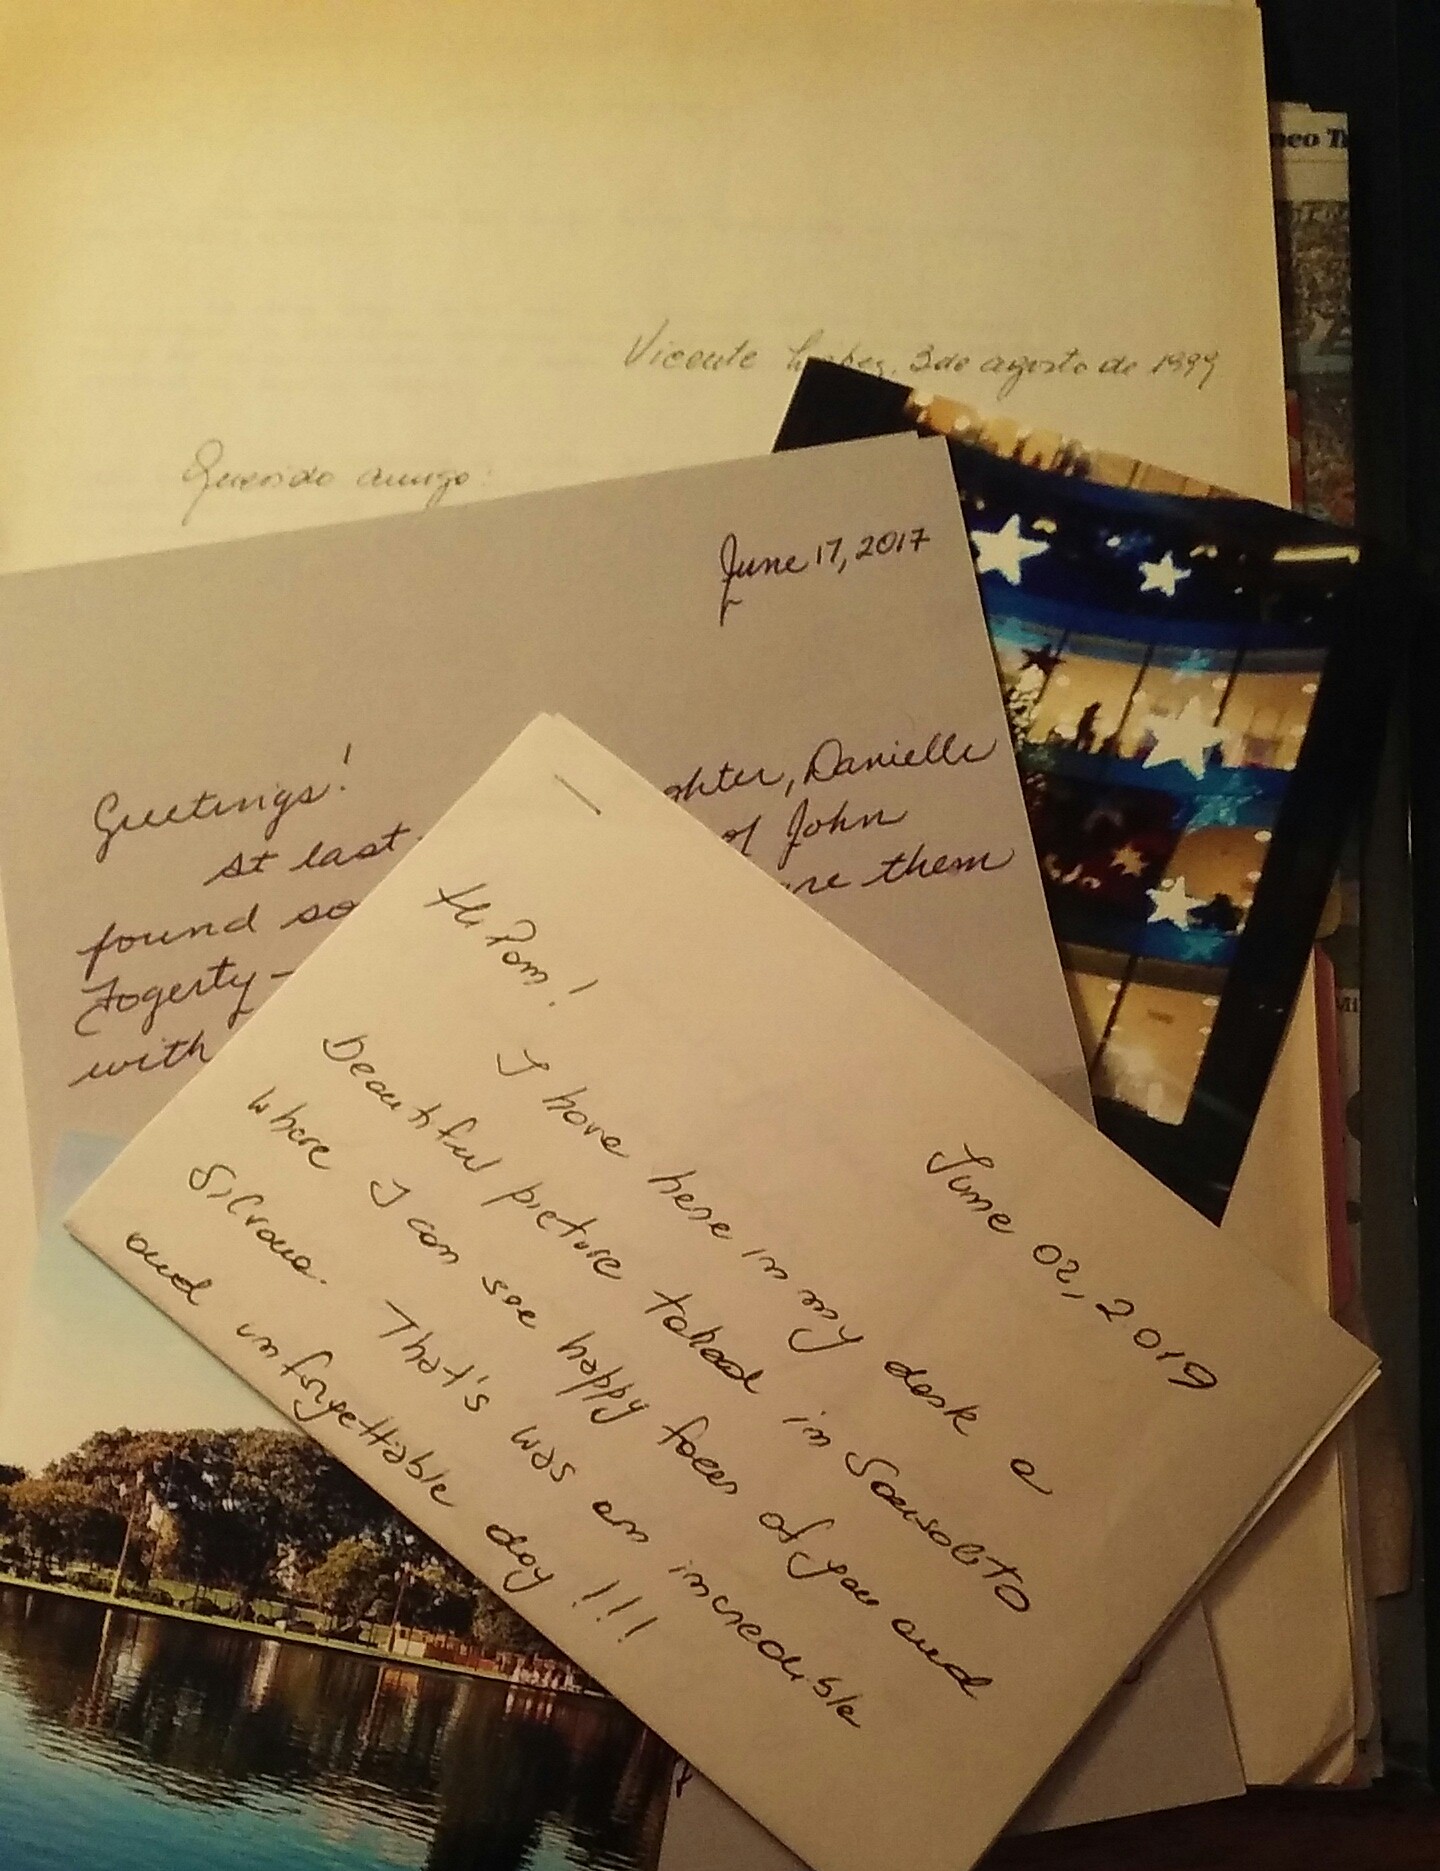 neo T
Vicente Lopez, 3 de agosto de 1999
Querido amigo:
June 17, 2017
Greetings!
At last ghter, Danielle
found so of John
Fogerty – are them
with
June 02, 2019
Hi Pam!
I have here in my desk a
beautiful picture taked in Sausalito
where I can see happy faces of you and
Silvana. That's was an incredible
and unforgettable day !!!